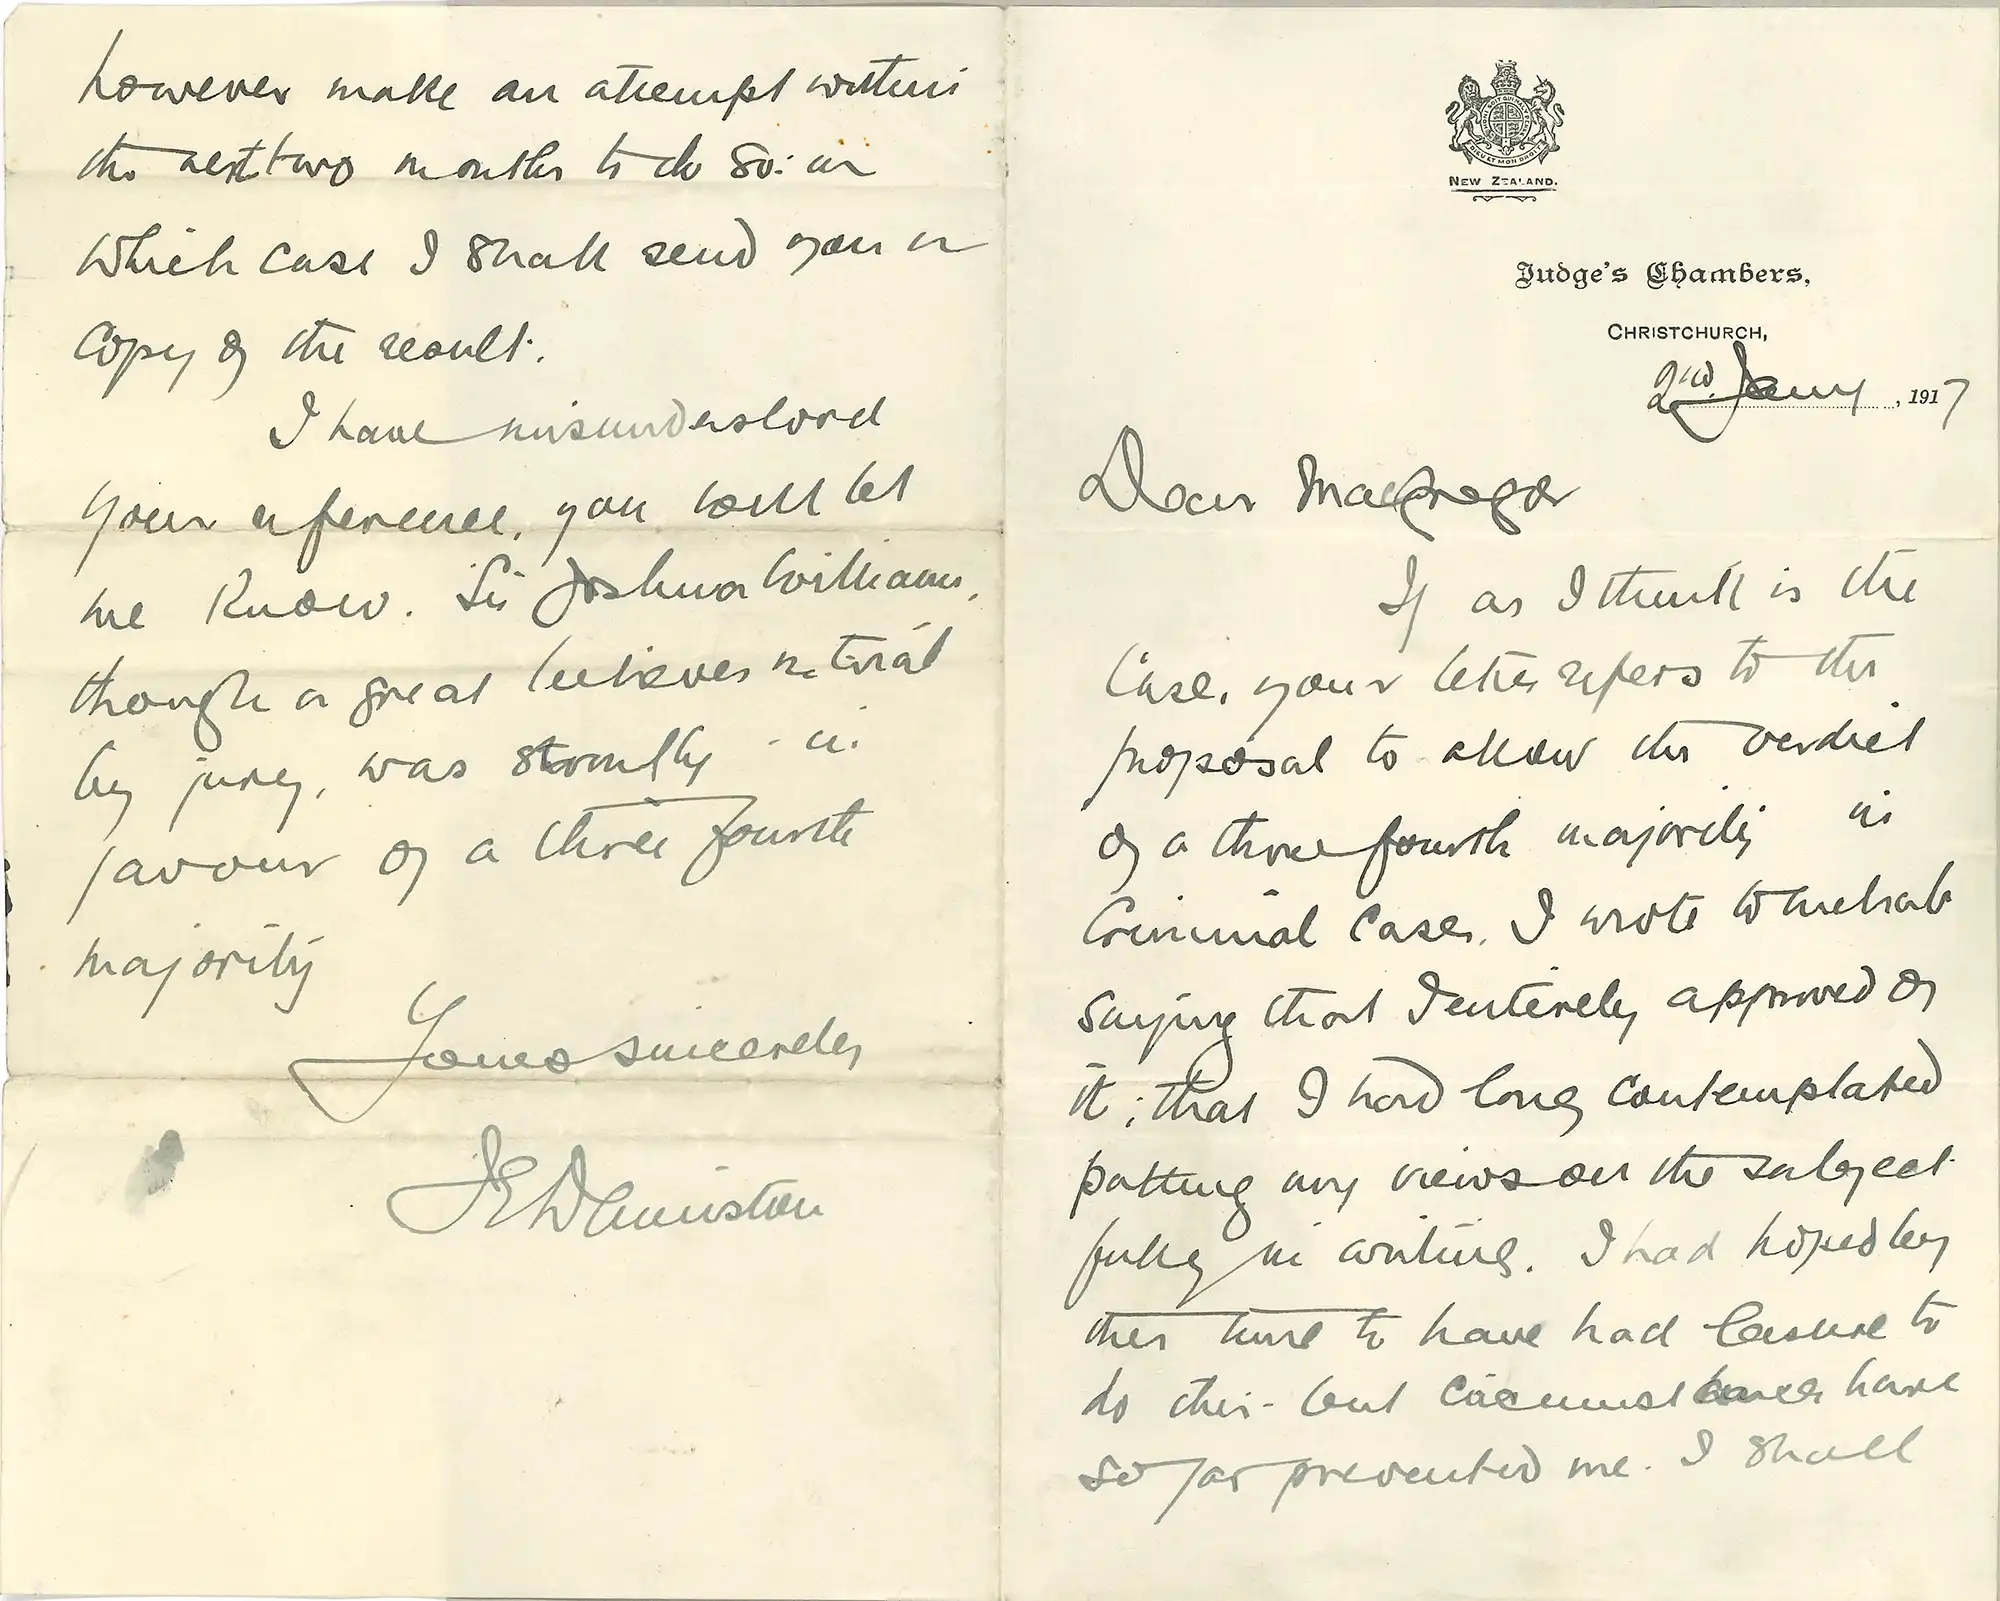 NEW ZEALAND.
Judge's Chambers,
CHRISTCHURCH,
2nd. Jany, 1917
Dear MacGregor
If as I think is the
Case, your letter refers to the
proposal to allow the verdict
of a three fourth majority in
Criminal Cases. I wrote to
saying that I entirely approved of
it; that I had long contemplated
putting my views on the subject
fully in writing. I had hoped by
this time to have had leisure to
do this - but circumstances have
so far prevented me. I shall
however make an attempt within
the next two months to do so: in
which case I shall send you a
copy of the result.
I have misunderstood
your reference, you will let
me know. Sir Joshua Williams,
though a great believer in trial
by jury, was strongly - in
favour of a three fourth
majority
Yours sincerely
JEDenniston